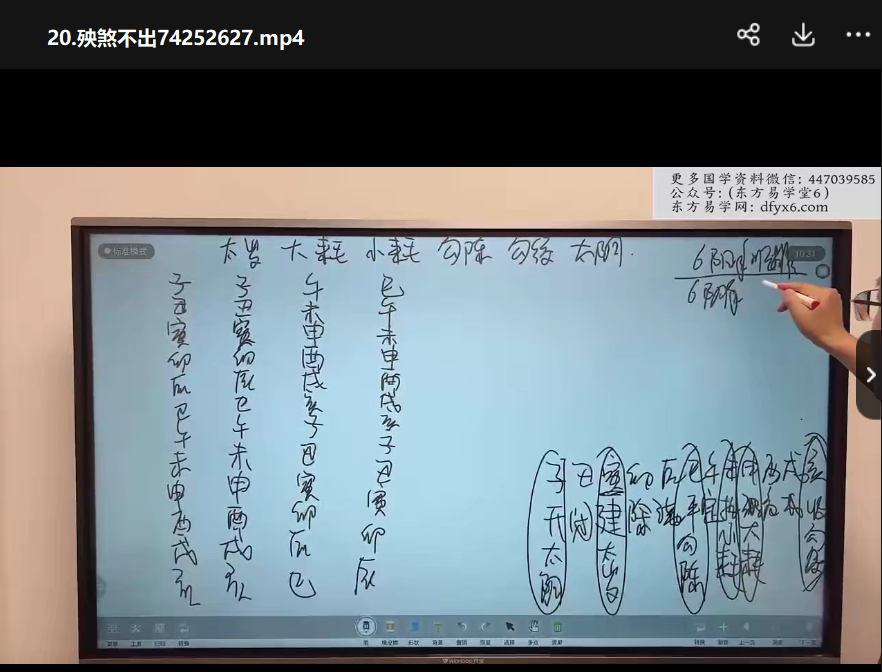 20.殃煞不出74252627.mp4
更多国学资料微信：447039585
公众号：(东方易学堂6)
东方易学网：dfyx6.com
标准模式
10:31
太岁 大耗 小耗 勾陈 勾绞 太阴
6阴年
子 子 午 巳
丑 丑 未 午
寅 寅 申 未
卯 卯 酉 申
辰 辰 戌 酉
巳 巳 亥 戌
午 午 子 亥
未 未 丑 子
申 申 寅 丑
酉 酉 卯 寅
戌 戌 辰 卯
亥 亥 巳 辰
子 丑 寅 卯 辰 巳 午 未 申 酉 戌 亥
开 闭 建 除 满 平 定 执 破 危 成 收
太阴 太岁 勾陈 小耗 大耗 勾绞